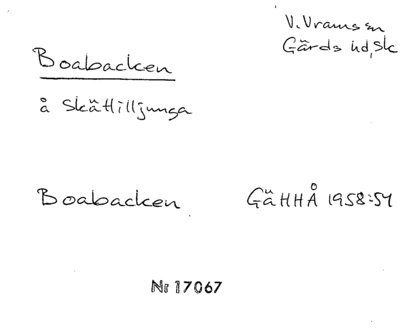 V. Vrams sn
Gärds hd, Sk
Boabacken
å Skättilljunga
Boabacken GäHHÅ 1958:54
Nr 17067